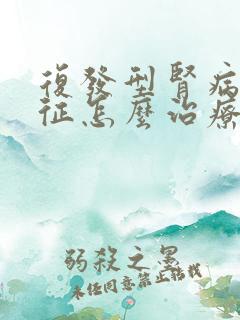 復發型腎病
征怎麼治療
弱殺之黑
未任同意禁止轉載